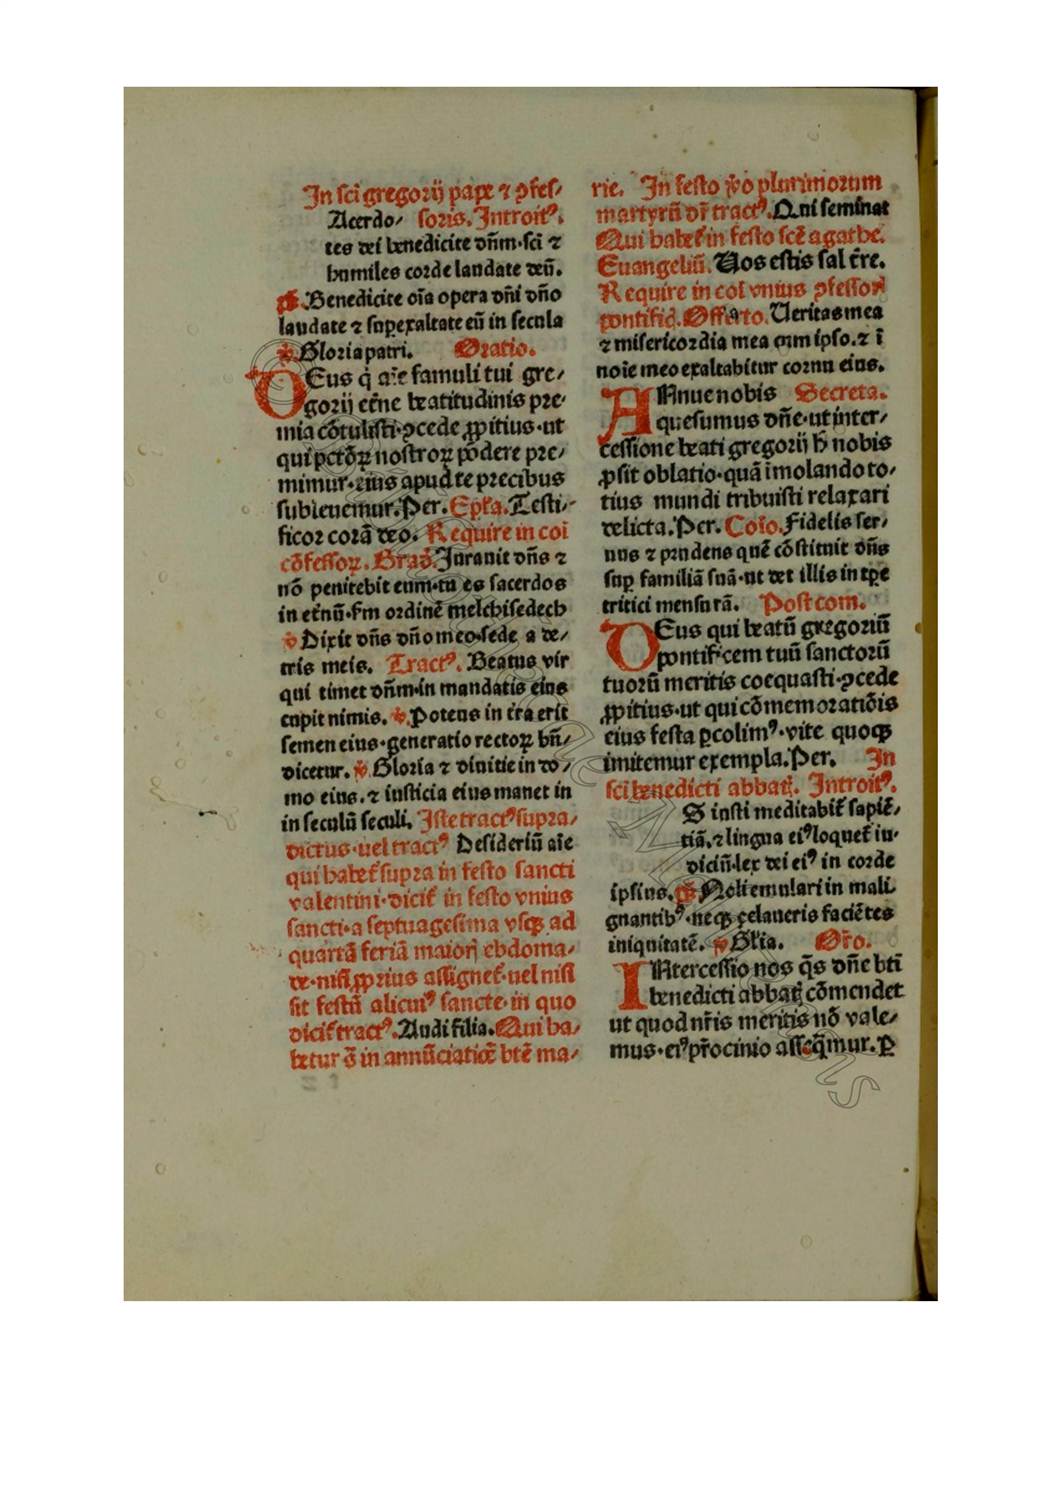 In sci gregorij pape ⁊ ꝯfes/
Acerdo/ soris. Introitꝰ.
tes dei benedicite dn̄m·sci ⁊
humiles corde laudate deū.
ps. Benedicite oīa opera dn̄i dn̄o
laudate ⁊ superexaltate eū in secula
℣. Gloria patri. Oratio.
DEus q̄ aīe famuli tui gre/
gorij et̄ne beatitudinis pre·
mia cōtulisti·ꝯcede ꝓpitius·ut
qui pctōꝝ nostroꝝ pōdere pre/
mimur·eius apud te precibus
subleuemur. Per. Epl̄a. Testi/
ficor corā deo. Require in coī
cōfessoꝝ. Grad̄. Jurauit dn̄s ⁊
nō penitebit eum·tu es sacerdos
in et̄nū·s̄m ordinē melchisedech
℣ Dixit dn̄s dn̄o meo·sede a de/
tris meis. Tractꝰ. Beatus vir
qui timet dn̄m·in mandatis eius
cupit nimis. ℣. Potens in t̄ra erit
semen eius·generatio rectoꝝ bn̄/
dicetur. ℣. Gloria ⁊ diuitie in do/
mo eius. ⁊ iusticia eius manet in
in seculū seculi. Iste tractꝰ supra/
dictus·uel tractꝰ Desideriū aīe
qui habet̄ supra in festo sancti
valentini·dicit̄ in festo vnius
sancti·a septuagesima vsqꝫ ad
quartā feriā maioris ebdoma/
de·nisi ꝓprius assignet̄·uel nisi
sit festū alicuiꝰ sancte·in quo
dicit̄ tractꝰ. Audi filia. Qui ha/
betur ō in annūciatiōe btē ma/
rie. In festo v̄o plurimorum
martyrū dr̄ tractꝰ. Qui seminat
Qui habet̄ in festo scē agathe.
Euangeliū. Uos estis sal t̄re.
Require in coī vnius ꝯfessoꝝ
pontific̄. Offerto. Ueritas mea
⁊ misericordia mea cum ipso. ⁊ ī
noīe meo exaltabitur cornu eius.
ANnue nobis Secreta.
quesumus dn̄e·ut inter/
cessione beati gregorij h̄ nobis
ꝓsit oblatio·quā īmolando to/
tius mundi tribuisti relaxari
delicta. Per. Coīo. Fidelis ser/
uus ⁊ prudens quē cōstituit dn̄s
suꝑ familiā suā·ut det illis in tꝑe
tritici mensurā. Postcom.
DEus qui beatū gregoriū
pontificem tuū sanctorū
tuorū meritis coequasti·ꝯcede
ꝓpitius·ut qui cōmemoratiōis
eius festa ꝑcolimꝰ·vite quoqꝫ
imitemur exempla. Per. In
sci benedicti abbatis. Introitꝰ.
S iusti meditabit̄ sapiē/
tiā. ⁊ lingua eiꝰ loquet̄ iu·
diciū·lex dei eiꝰ in corde
ipsius. ps Noli emulari in mali
gnantibꝰ·neqꝫ zelaueris faciētes
iniquitatē. ℣ Gl̄ia. Or̄o.
INtercessio nos q̄s dn̄e bt̄i
benedicti abbatis cōmendet
ut quod nr̄is meritis nō vale/
mus·eiꝰ pr̄ocinio asseq̄mur. ꝑ